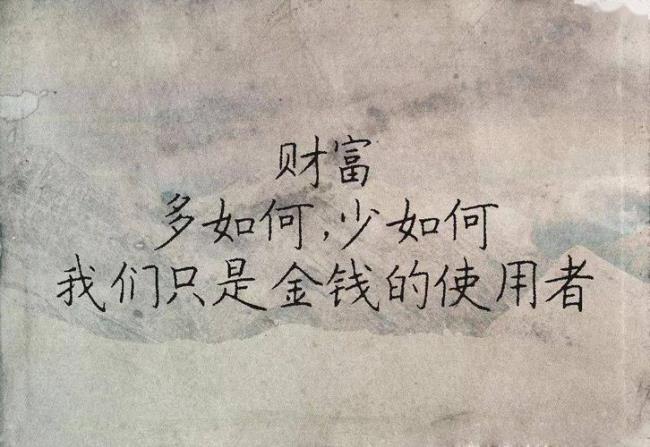 财富
多如何,少如何
我们只是金钱的使用者